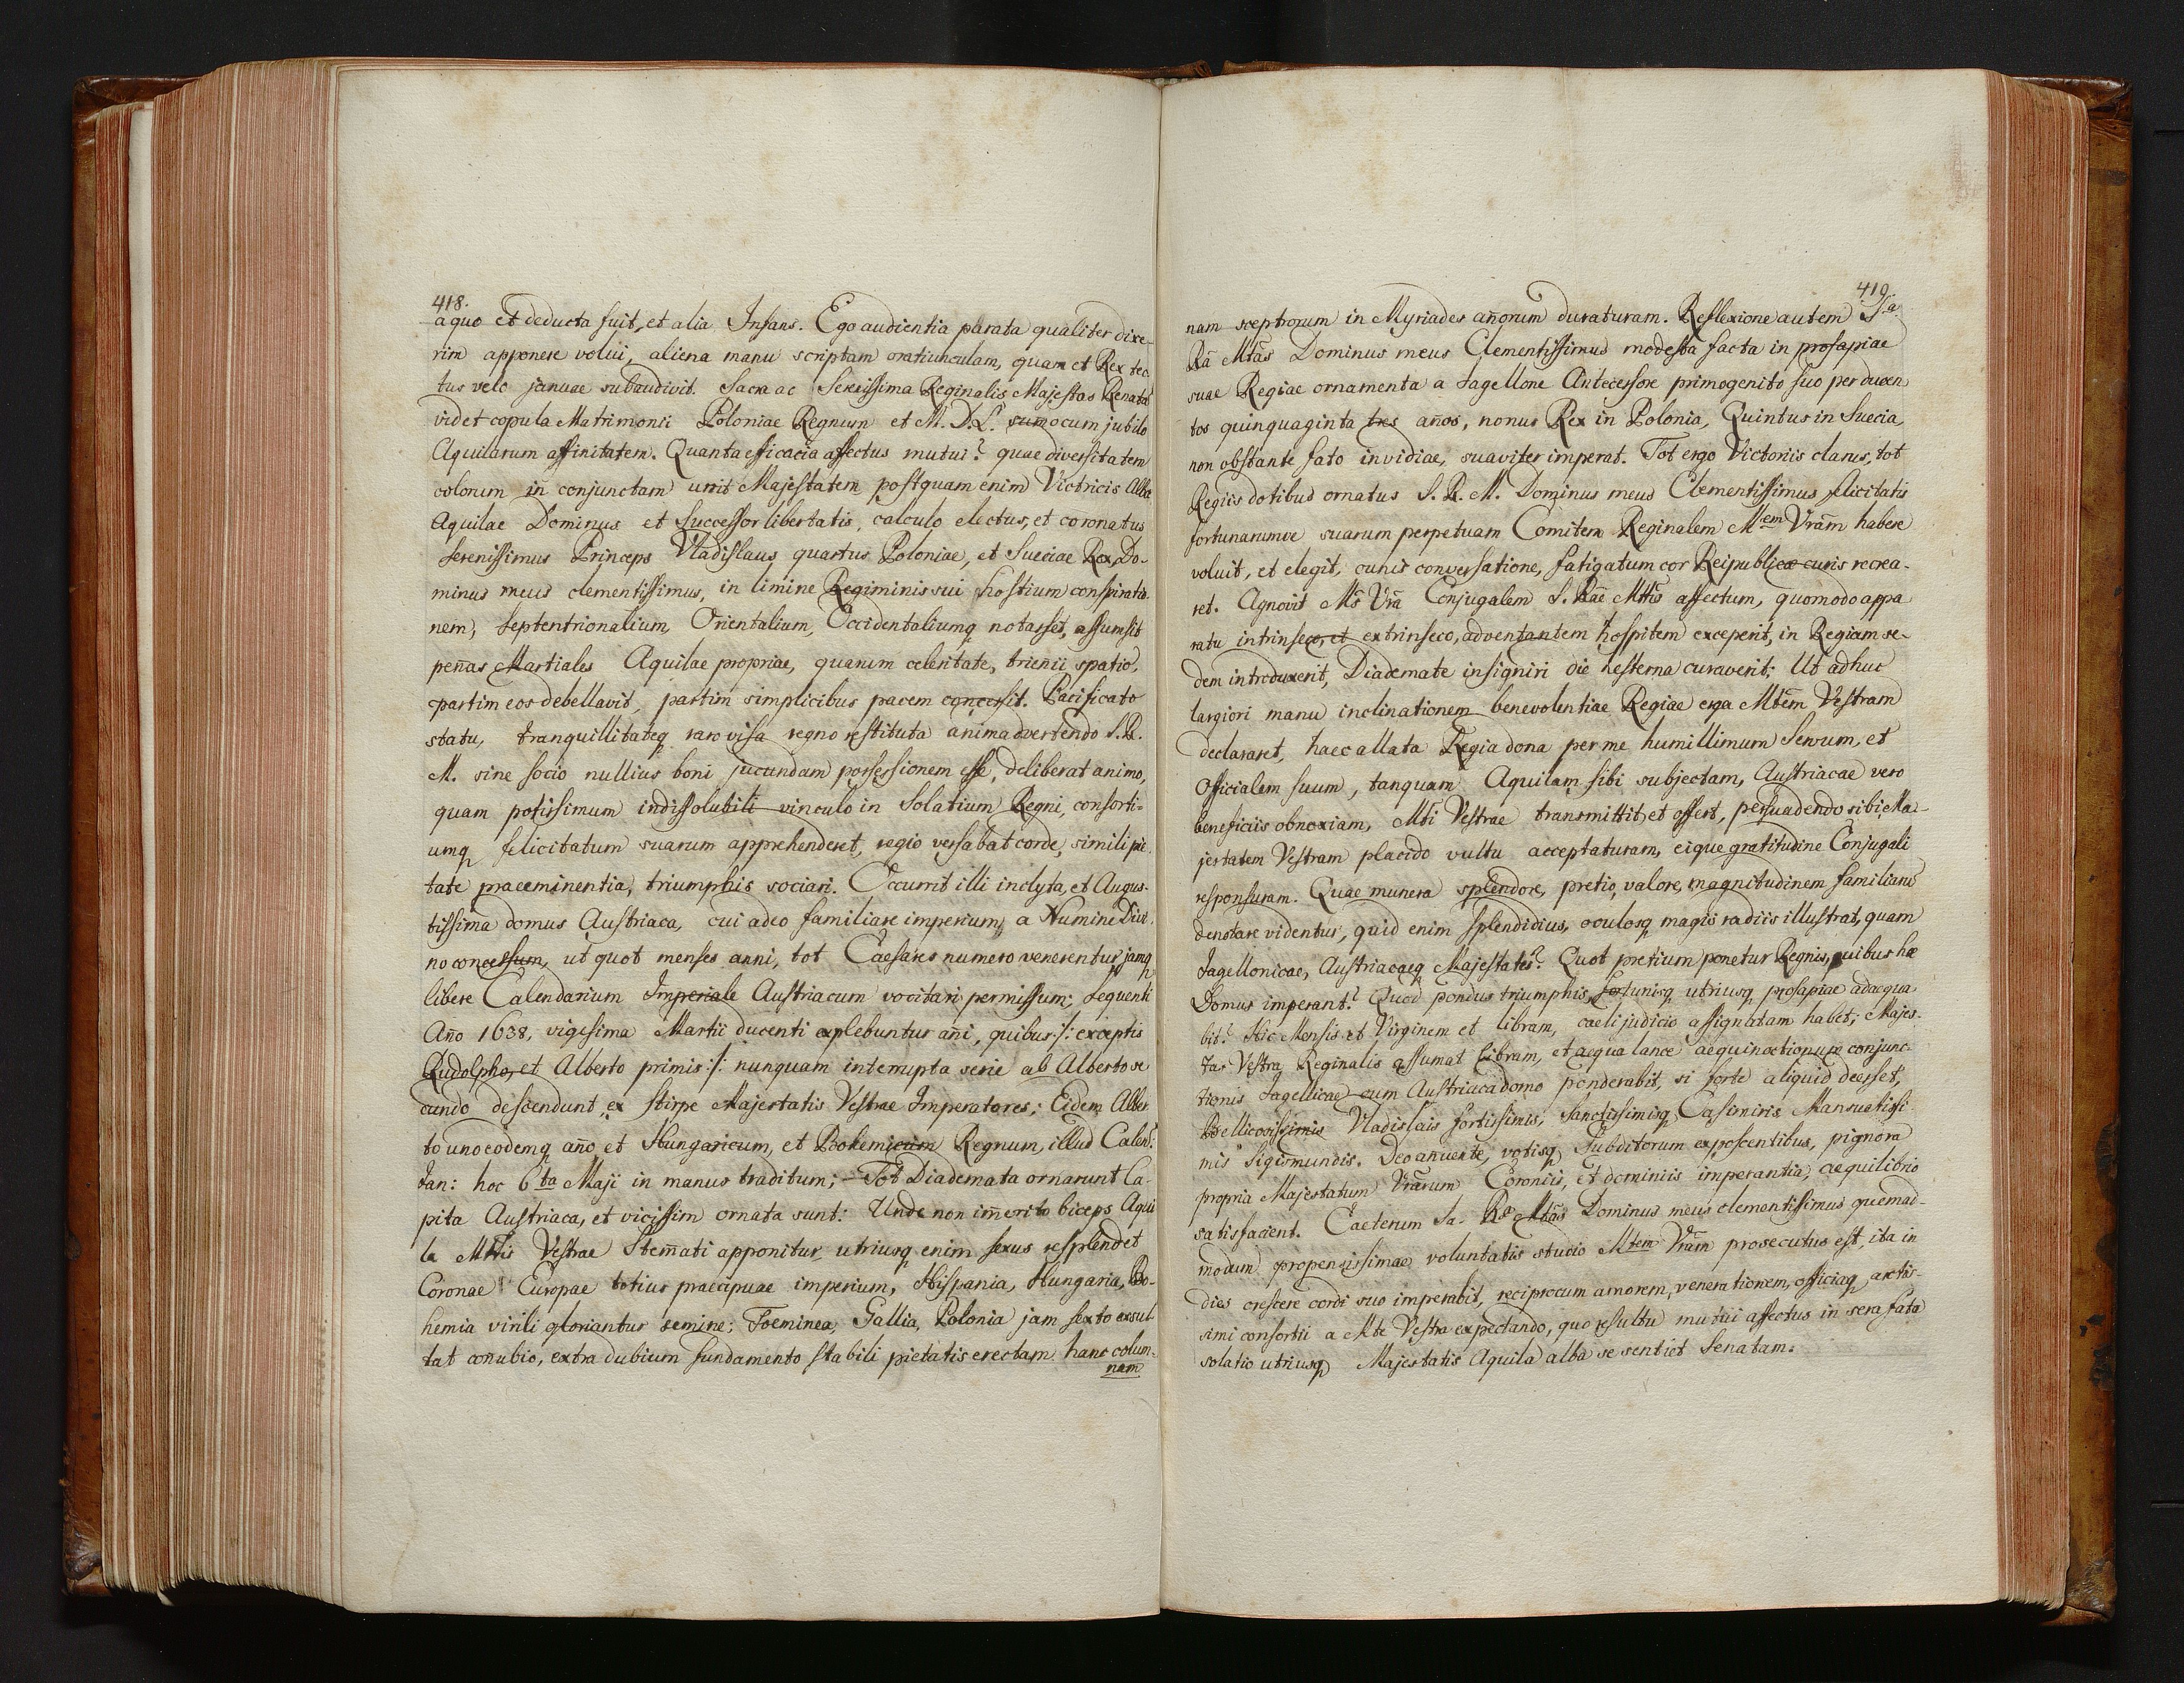 418.
a quo et deducta fuit, et alia Infans. Ego audientia parata qualiter dixe-
rim apponere volui, aliena manu scriptam oratiunculam, quam et Rex tec
tus velo januae subaudivit. Sacra ac Serenissima Reginalis Majestas Renata
videt copula Matrimonii Poloniae Regnum et M. D. L. sum̄o cum jubilo
Aquilarum affinitatem. Quanta efficacia affectus mutui? quae diversitatem
colorum in conjunctam unit Majestatem postquam enim Victricis Alba
Aquilae Dominus et Successor libertatis, calculo electus, et coronatus
Serenissimus Princeps Vladislaus quartus Poloniae, et Sueciae Rex, Do-
minus meus clementissimus, in limine Regiminis sui hostium conspiratio
nem, Septentrionalium, Orientalium, Occidentaliumq notasset, assumsit
pen̄as Martiales Aquilae propriae, quarum celeritate, trienii spatio,
partim eos debellavit, partim simplicibus pacem concessit. Pacificato
statu, tranquillitateq raro visa regno restituta animadvertendo S. R.
M. sine socio nullius boni jucundam possessionem esse, deliberat animo,
quam potissimum indissolubili vinculo in Solatium Regni, consorti-
umq felicitatum suarum apprehenderet, regio versabat corde, simili pie
tate praeeminentia, triumphis sociari. Occurrit illi inclyta, et Augus-
tissima domus Austriaca, cui adeo familiare imperium, a Numine Divi-
no concessum, ut quot menses anni, tot Caesares numero venerentur jamq
libere Calendarium Imperiale Austriacum vocitari permissum; Sequenti
An̄o 1638, vigesima Martii ducenti explebuntur an̄i, quibus /: exceptis
Rudolpho, et Alberto primis :/ nunquam interrupta serie ab Alberto se
cundo descendunt ex stirpe Majestatis Vestrae Imperatores; Eidem Alber
to uno eodemq an̄o et Hungaricum, et Bohemicum Regnum, illud Calend:
Jan: hoc 6ta Maji in manus traditum; Tot Diademata ornarunt Ca-
pita Austriaca, et vicissim ornata sunt: Unde non im̄erito biceps Aqui
la Mttis Vestrae Stem̄ati apponitur, utriusq enim sexus resplendet
Coronae Europae totius praecipuae imperium, Hispania, Hungaria, Bo-
hemia virili gloriantur semine; Foeminea, Gallia, Polonia jam sexto exsul
tat con̄ubio, extra dubium fundamento stabili pietatis erectam hanc colum-
nam
419.
nam sceptrorum in Myriades an̄orum duraturam. Reflexione autem Sa
Rā Mtās Dominus meus Clementissimus modesta facta in prosapiae
suae Regiae ornamenta a Jagellone Antecessore primogenito suo per ducen
tos quinquaginta tres an̄os, nonus Rex in Polonia, Quintus in Suecia,
non obstante fato invidiae, suaviter imperat. Tot ergo Victoriis clarus, tot
Regiis dotibus ornatus S. R. M. Dominus meus Clementissimus felicitatis
fortunarumve suarum perpetuam Comitem Reginalem Mem Vrām habere
voluit, et elegit, cunis conversatione, fatigatum cor Reipublicæ curis recrea-
ret. Agnovit Ms̄ Vrā Conjugalem S. Rāe Mttis affectum, quomodo appa
ratu intrinseco, et extrinseco, adventantem hospitem exceperit, in Regiam se-
dem introduxerit, Diademate insigniri die hesterna curaverit; Ut adhuc
largiori manu inclinationem benevolentiae Regiae erga Mtēm Vestram
declararet, haec allata Regia dona per me humillimum Servum, et
Officialem suum, tanquam Aquilam sibi subjectam, Austriacae vero
beneficiis obnoxiam, Mti Vestrae transmittit et offert, persuadendo sibi Ma-
jestatem Vestram placido vultu acceptaturam, eique gratitudine Conjugali
responsuram. Quae munera splendore, pretio, valore, magnitudinem familiarū
denotare videntur, quid enim splendidius, oculosq magis radiis illustrat, quam
Jagellonicae, Austriacaeq Majestates? Quot pretium ponetur Regnis, quibus hæ
Domus imperant? Quod pondus triumphis, fortunisq utriusq prosapiae adaequa
bit? Hic Mensis et Virginem et libram, caeli judicio assignatam habet; Majes-
tas Vestra Reginalis assumat libram, et aequa lance aequinoctionum conjunc-
tionis Jagellicae cum Austriaca domo ponderabit, si forte aliquid deesset,
Bellicosissimis Vladislais fortissimis, Sanctissimisq Casimiris Mansuetissi-
mis Sigismundis. Deo an̄uente, votisq Subditorum exposcentibus, pignora
propria Majestatum Vrārum Coroniis, et dominiis imperantia, aequilibrio
satisfacient. Caeterum Sa. Ræ Mtās Dominus meus clementissimus quemad-
modum propensissimae voluntatis studio Mtem Vrām prosecutus est, ita in
dies crescere cordi suo imperabit, reciprocum amorem, venerationem, officiaq arctis-
simi consortii a Mte Vestra expectando, quo resultu mutui affectus in sera fata
solatio utriusq Majestatis Aquila alba se sentiet Senatam.